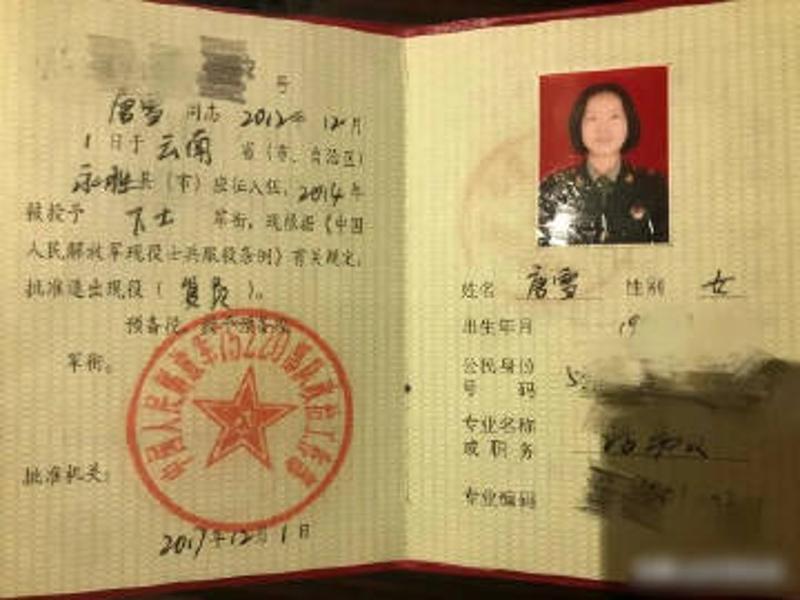 号
唐雪 同志 2012年 12月
1 日于 云南 省（市、自治区）
永胜县（市）应征入伍，2014年
被授予 下士 军衔。现根据《中国
人民解放军现役士兵服役条例》有关规定，
批准退出现役（ 复员 ）。
预备役，授予预备役
军衔。
中国人民解放军75220部队政治工作部
批准机关：
2017年12月1日
姓名 唐雪 性别 女
出生年月 19
公民身份
号 码 5
专业名称
或职务
专业编码